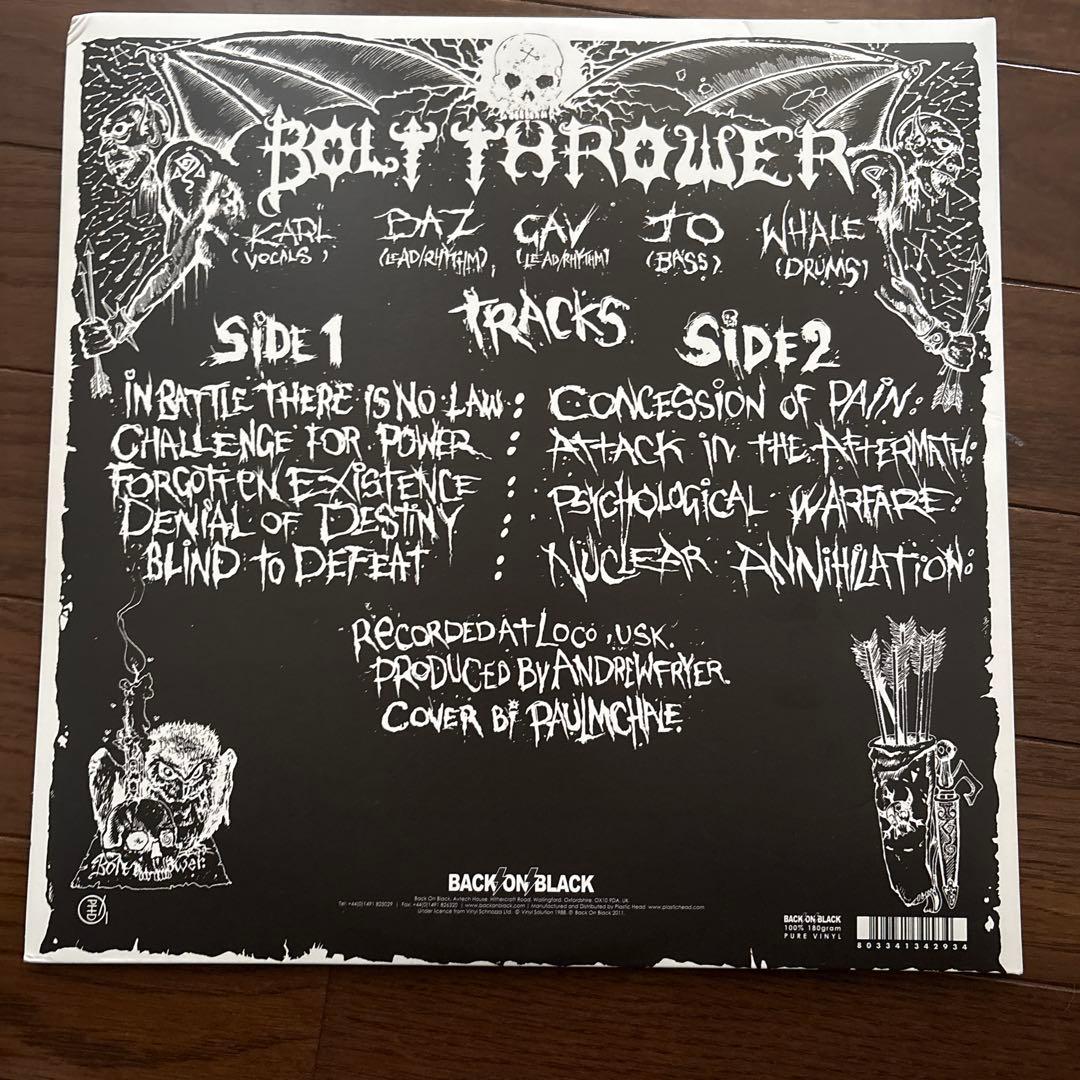 BOLT THROWER
KARL BAZ GAV JO WHALE
(VOCALS) (LEAD/RHYTHM), (LEAD/RHYTHM) (BASS). (DRUMS)
TRACKS
SIDE 1
IN BATTLE THERE IS NO LAW:
CHALLENGE FOR POWER :
FORGOTTEN EXISTENCE :
DENIAL OF DESTINY :
BLIND TO DEFEAT :
SIDE 2
CONCESSION OF PAIN:
ATTACK IN THE AFTERMATH:
PSYCHOLOGICAL WARFARE:
NUCLEAR ANNIHILATION:
RECORDED AT LOCO, USK.
PRODUCED BY ANDREW FRYER.
COVER BY PAUL MCHALE.
Bolt Thrower
BACK ON BLACK
Back On Black, Avtech House, Hithercroft Road, Wallingford, Oxfordshire, OX10 9DA, UK.
Tel: +44(0)1491 825029 | Fax: +44(0)1491 826320 | www.backonblack.com | Manufactured and Distributed by Plastic Head www.plastichead.com
Under licence from Vinyl Schnazza Ltd. © Vinyl Solution 1988. ℗ Back On Black 2011.
BACK ON BLACK
100% 180gram
PURE VINYL
8033413342934